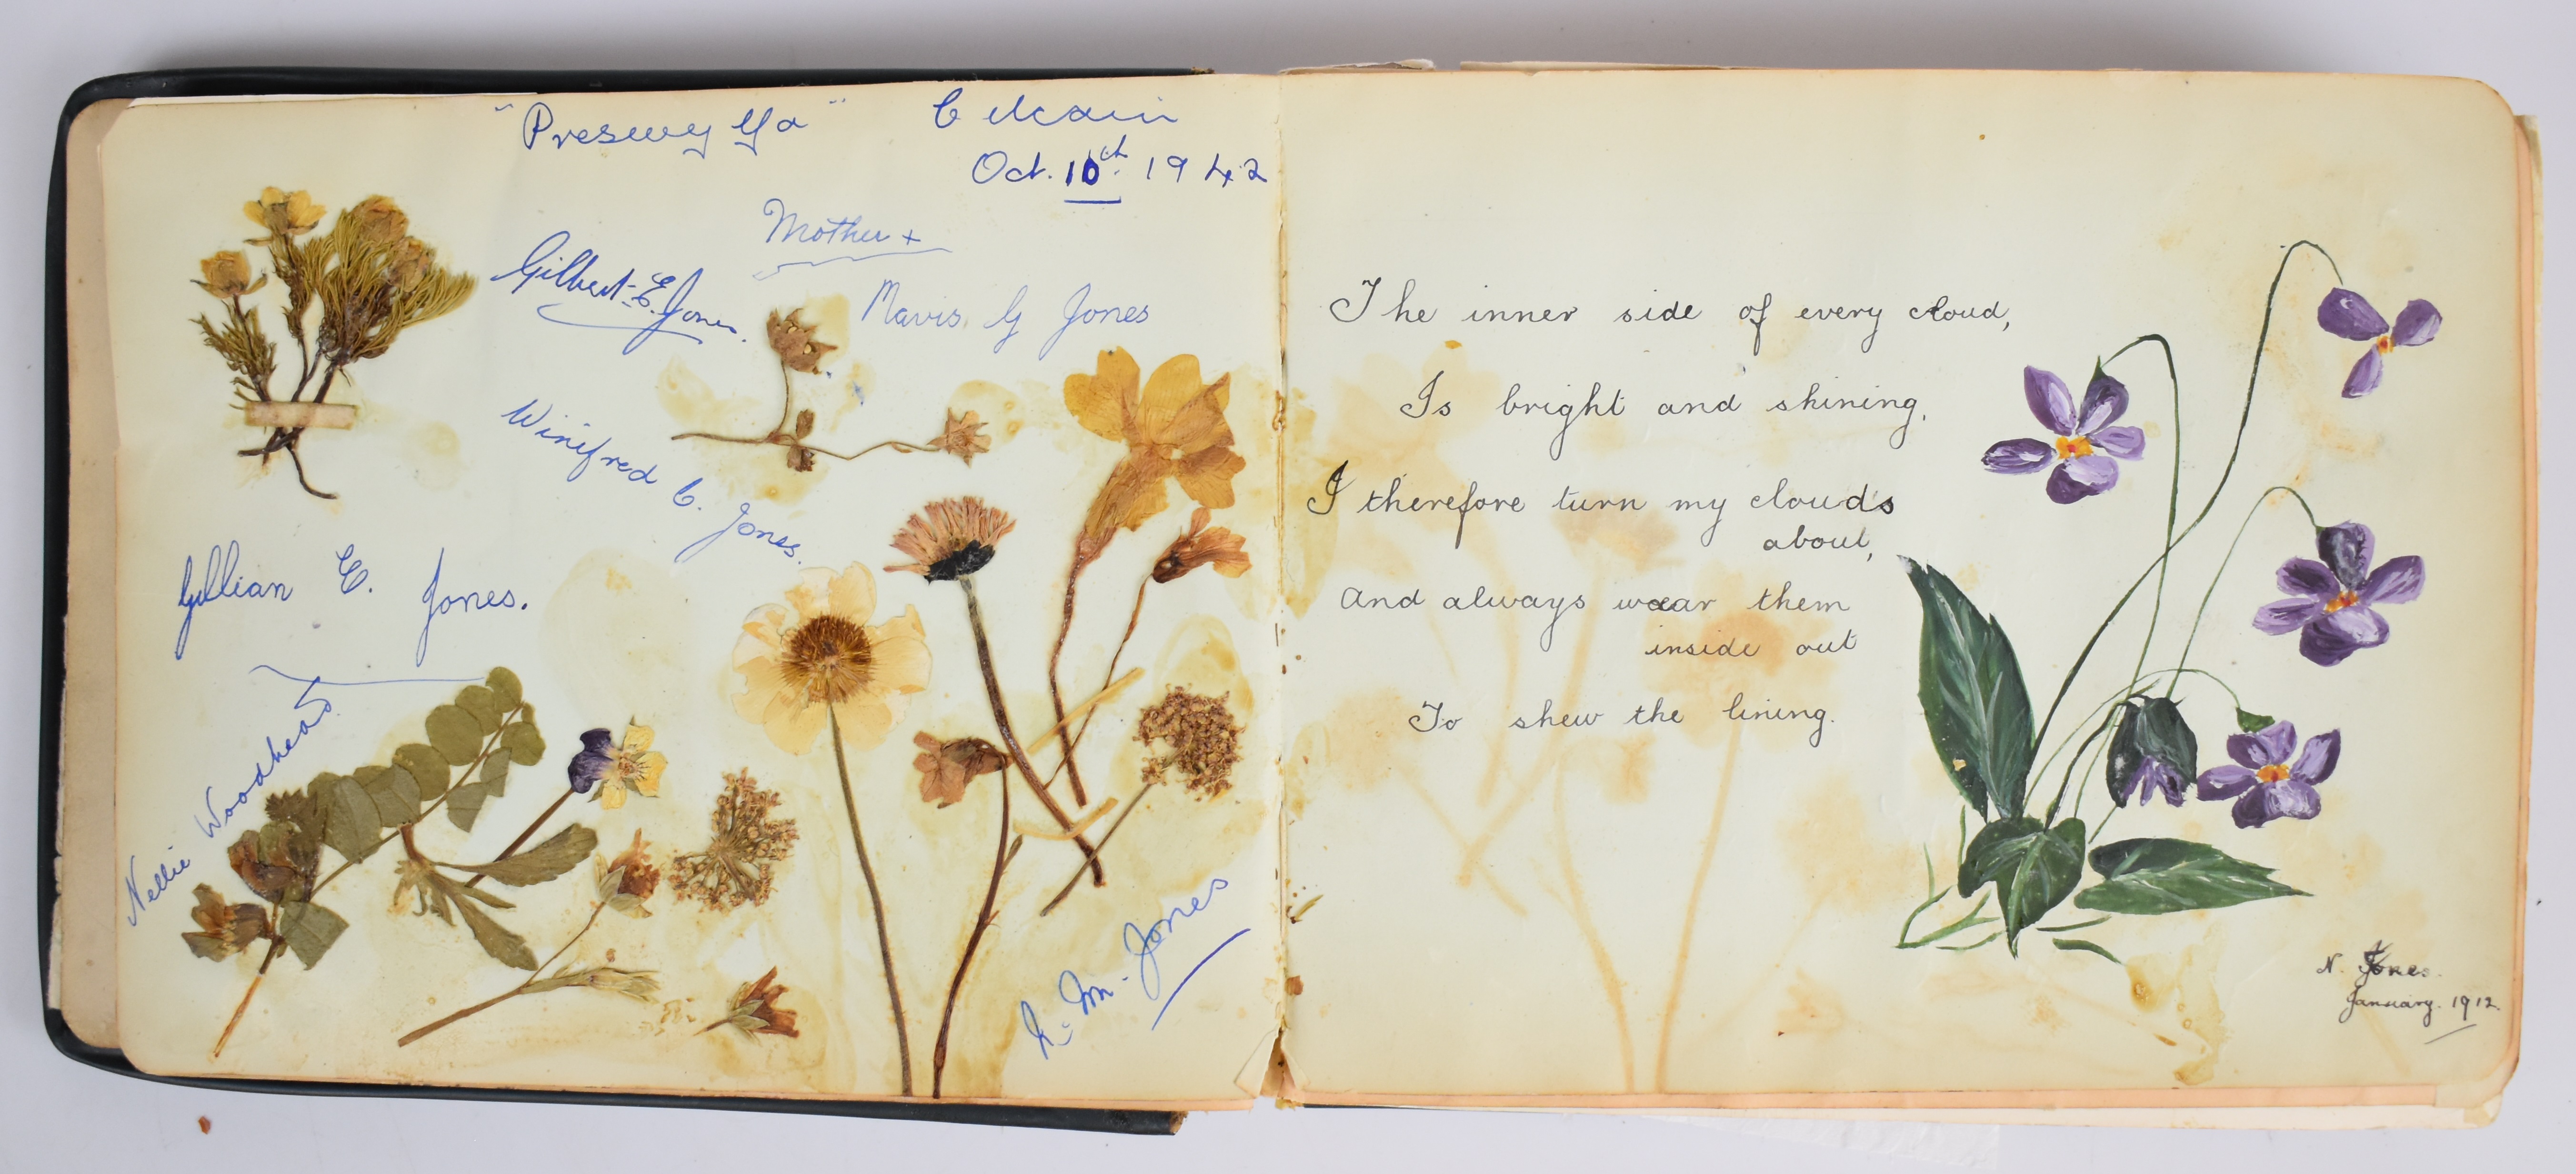 "Preswylfa" Cilcain
Oct. 10th. 1942
Mother +
Gilbert E. Jones.
Mavis. G Jones
Winifred C. Jones.
Gillian E. Jones.
Nellie Woodhead.
M. Jones
The inner side of every cloud,
Is bright and shining,
I therefore turn my clouds
about,
And always wear them
inside out
To shew the lining.
N. Jones.
January. 1912.